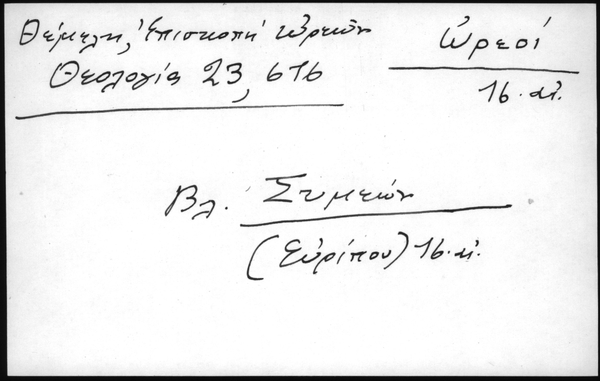 Θέμελη, Ἐπισκοπή Ὠρεῶν
Θεολογία 23, 616
Ὠρεοί
16. αἰ.
Βλ. Συμεών
(Εὐρίπου) 16. αἰ.